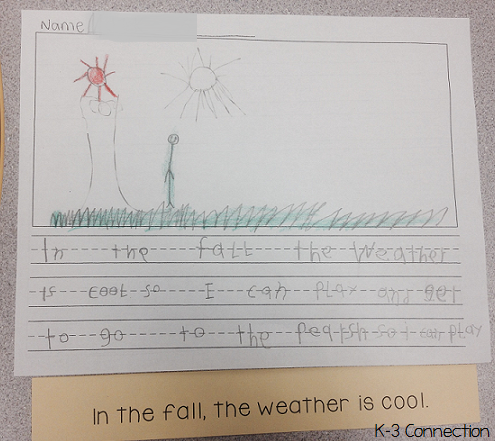 Name
In the fall the Weather
is cool so I can play and get
to go to the so I can play
In the fall, the weather is cool.
K-3 Connection